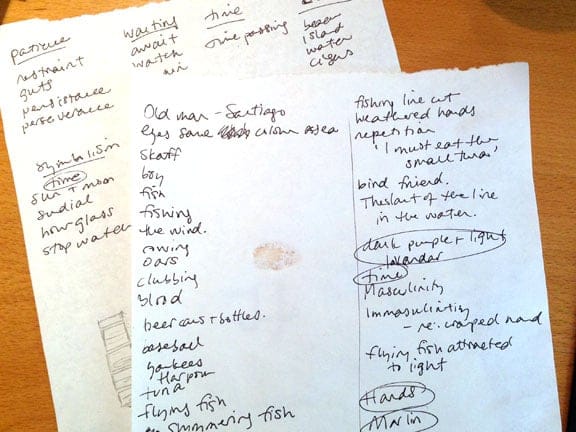 patience
restraint
guts
persistance
perseverance
waiting
await
watch
time
time passing
beer
island
water
cigars
symbolism
time
sun + moon
sundial
hour glass
stop watch
Old man - Santiago
eyes same colour as sea
skaff
boy
fish
fishing
the wind.
rowing
oars
clubbing
blood
beer cans + bottles.
baseball
yankees
Harpoon
tuna
flying fish
shimmering fish
fishing line cut
weathered hands
repetition
'I must eat the
small tuna'
bird friend.
The slant of the line
in the water.
dark purple + light
lavander
time
Masculinity
Immasculinity
- re: cramped hand
flying fish attracted
to light
Hands
Marlin